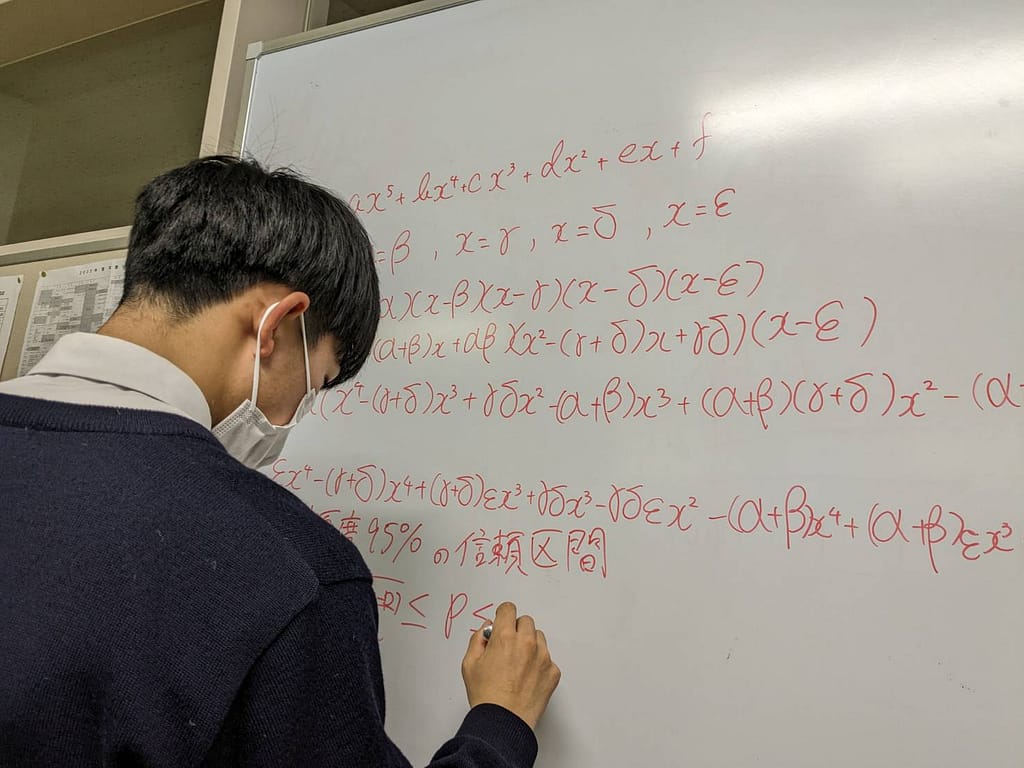 ax⁵+bx⁴+cx³+dx²+ex+f
=β , x=γ , x=δ , x=ε
α)(x-β)(x-γ)(x-δ)(x-ε)
(α+β)x+αβ)(x²-(γ+δ)x+γδ)(x-ε)
(x⁴-(γ+δ)x³+γδx²-(α+β)x³+(α+β)(γ+δ)x²-(α
εx⁴-(γ+δ)x⁴+(γ+δ)εx³+γδx³-γδεx²-(α+β)x⁴+(α+β)εx³
度95%の信頼区間
≤ p ≤